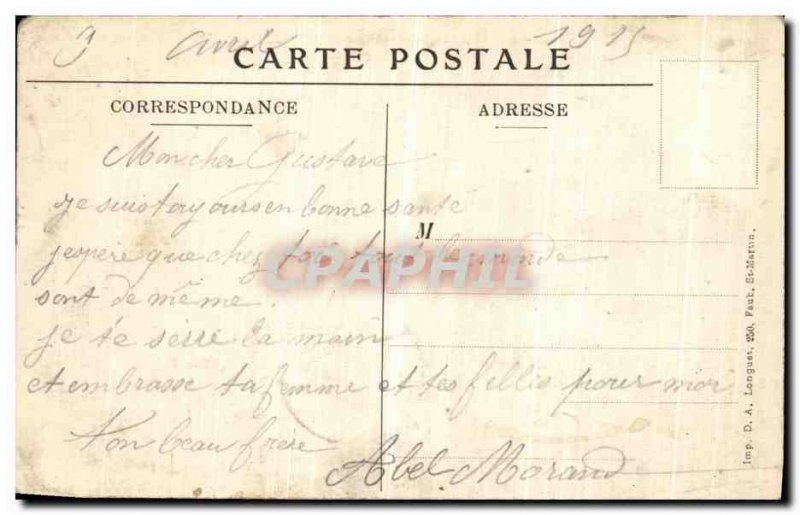 9 avril 1915
CARTE POSTALE
CORRESPONDANCE
ADRESSE
Mon cher Gustave
je suis toujours en bonne santé
M
j'espère que chez toi tout le monde
CPAPHIL
sont de même.
je te serre la main
et embrasse ta femme et tes filles pour moi
Ton beau frère
Abel Morand
Imp. D. A. Longuet, 250, Faub. St-Martin.